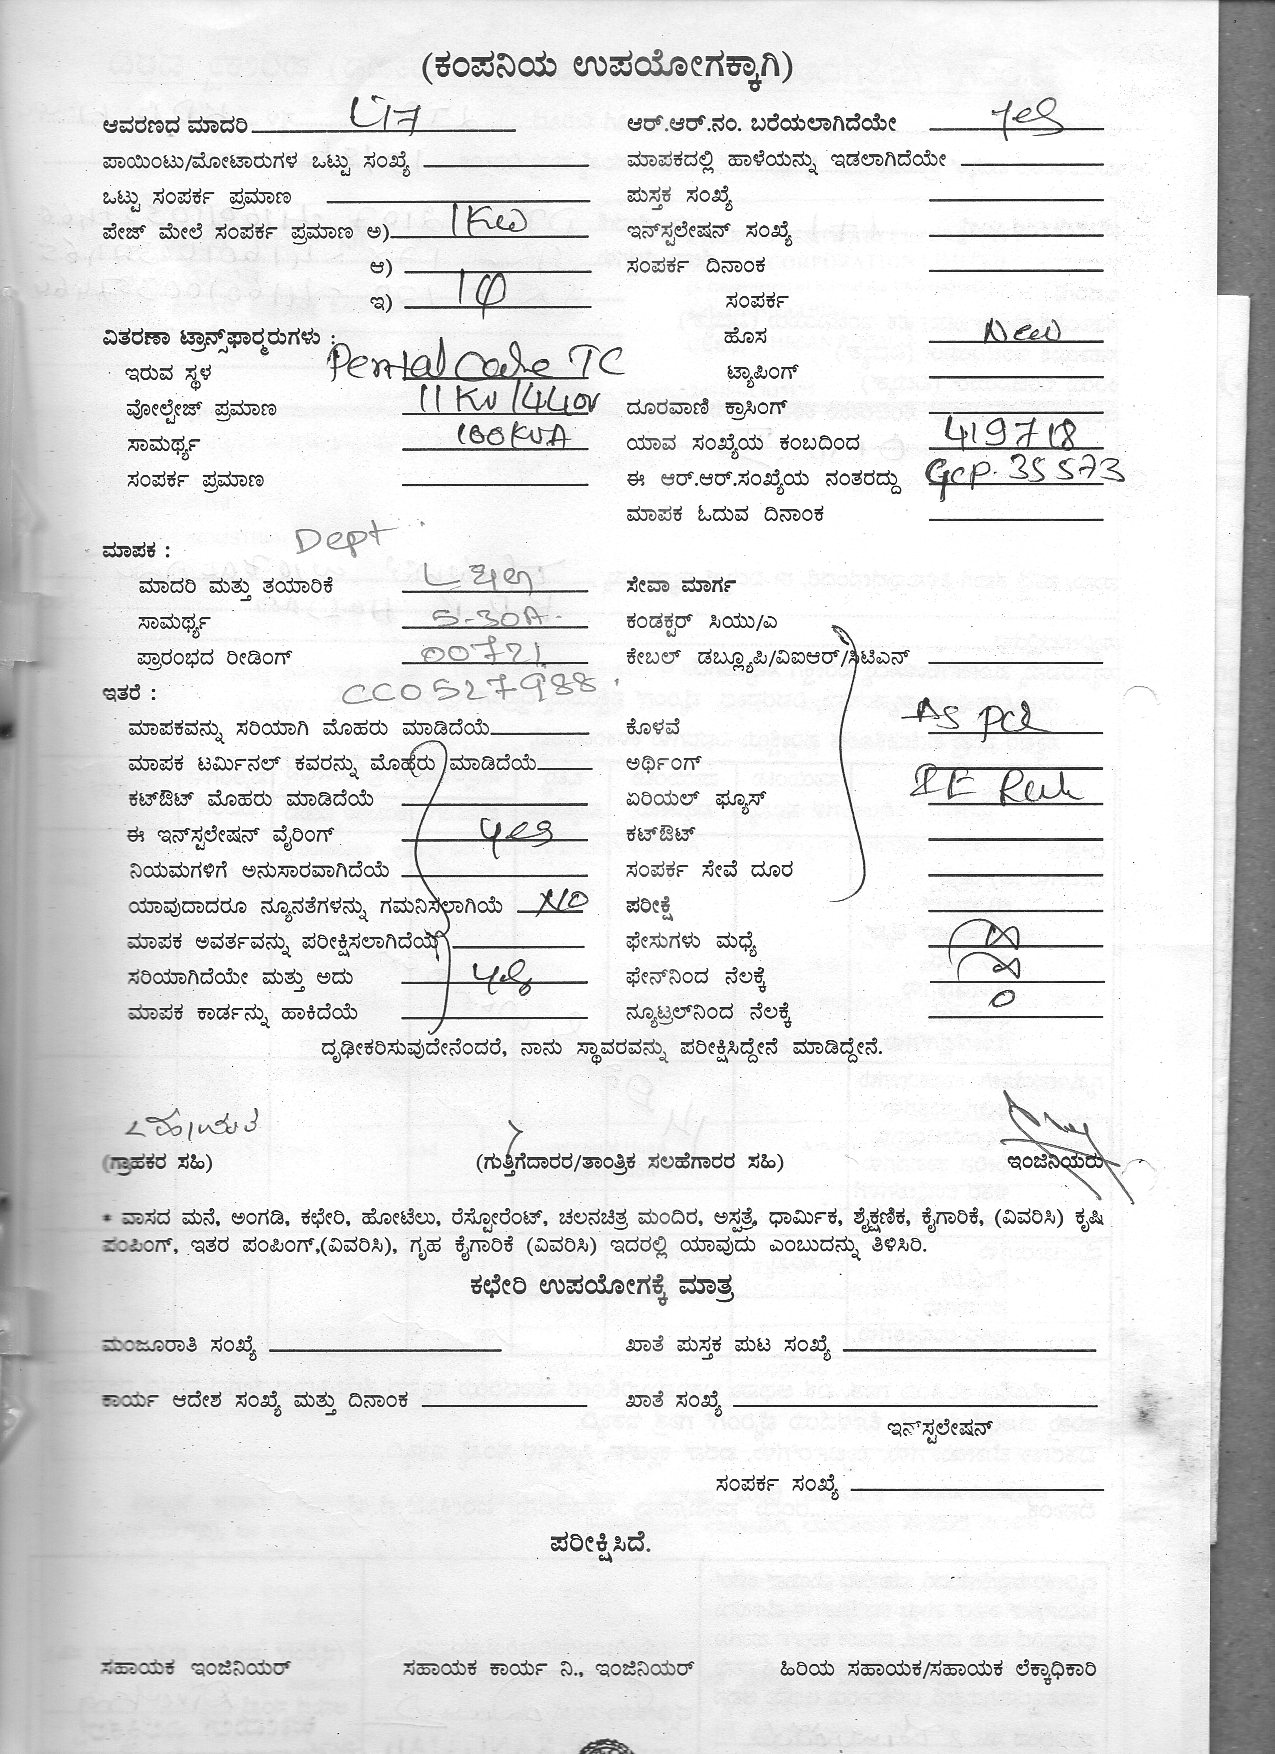 (ಕಂಪನಿಯ ಉಪಯೋಗಕ್ಕಾಗಿ)
ಆವರಣದ ಮಾದರಿ LT7 ಆರ್.ಆರ್.ನಂ. ಬರೆಯಲಾಗಿದೆಯೇ Yes
ಪಾಯಿಂಟು/ಮೋಟಾರುಗಳ ಒಟ್ಟು ಸಂಖ್ಯೆ ಮಾಪಕದಲ್ಲಿ ಹಾಳೆಯನ್ನು ಇಡಲಾಗಿದೆಯೇ
ಒಟ್ಟು ಸಂಪರ್ಕ ಪ್ರಮಾಣ ಪುಸ್ತಕ ಸಂಖ್ಯೆ
ಪೇಜ್ ಮೇಲೆ ಸಂಪರ್ಕ ಪ್ರಮಾಣ ಅ) 1Kw ಇನ್‌ಸ್ಟಲೇಷನ್ ಸಂಖ್ಯೆ
ಆ) ಸಂಪರ್ಕ ದಿನಾಂಕ
ಇ) 1φ ಸಂಪರ್ಕ
ವಿತರಣಾ ಟ್ರಾನ್ಸ್‌ಫಾರ್ಮರುಗಳು : ಹೊಸ New
ಇರುವ ಸ್ಥಳ TC ಟ್ಯಾಪಿಂಗ್
ವೋಲ್ಟೇಜ್ ಪ್ರಮಾಣ 11KV/440V ದೂರವಾಣಿ ಕ್ರಾಸಿಂಗ್
ಸಾಮರ್ಥ್ಯ 100KVA ಯಾವ ಸಂಖ್ಯೆಯ ಕಂಬದಿಂದ 419718
ಸಂಪರ್ಕ ಪ್ರಮಾಣ ಈ ಆರ್.ಆರ್.ಸಂಖ್ಯೆಯ ನಂತರದ್ದು GCP. 35573
ಮಾಪಕ ಓದುವ ದಿನಾಂಕ
ಮಾಪಕ : Dept
ಮಾದರಿ ಮತ್ತು ತಯಾರಿಕೆ ಸೇವಾ ಮಾರ್ಗ
ಸಾಮರ್ಥ್ಯ 5-30A ಕಂಡಕ್ಟರ್ ಸಿಯು/ಎ
ಪ್ರಾರಂಭದ ರೀಡಿಂಗ್ 00721 ಕೇಬಲ್ ಡಬ್ಲ್ಯೂಪಿ/ವಿಐಆರ್/ಸಿಟಿಎನ್
ಇತರೆ : CC0527988
ಮಾಪಕವನ್ನು ಸರಿಯಾಗಿ ಮೊಹರು ಮಾಡಿದೆಯೆ ಕೊಳವೆ As per
ಮಾಪಕ ಟರ್ಮಿನಲ್ ಕವರನ್ನು ಮೊಹರು ಮಾಡಿದೆಯೆ ಅರ್ಥಿಂಗ್
ಕಟ್‌ಔಟ್ ಮೊಹರು ಮಾಡಿದೆಯೆ ಏರಿಯಲ್ ಫ್ಯೂಸ್ IE Rule
ಈ ಇನ್‌ಸ್ಟಲೇಷನ್ ವೈರಿಂಗ್ yes ಕಟ್‌ಔಟ್
ನಿಯಮಗಳಿಗೆ ಅನುಸಾರವಾಗಿದೆಯೆ ಸಂಪರ್ಕ ಸೇವೆ ದೂರ
ಯಾವುದಾದರೂ ನ್ಯೂನತೆಗಳನ್ನು ಗಮನಿಸಲಾಗಿಯೆ NO ಪರೀಕ್ಷೆ
ಮಾಪಕ ಅವರ್ತವನ್ನು ಪರೀಕ್ಷಿಸಲಾಗಿದೆಯೆ ಫೇಸುಗಳು ಮಧ್ಯೆ ∞
ಸರಿಯಾಗಿದೆಯೇ ಮತ್ತು ಅದು yes ಫೇಸ್‌ನಿಂದ ನೆಲಕ್ಕೆ ∞
ಮಾಪಕ ಕಾರ್ಡನ್ನು ಹಾಕಿದೆಯೆ ನ್ಯೂಟ್ರಲ್‌ನಿಂದ ನೆಲಕ್ಕೆ 0
ದೃಢೀಕರಿಸುವುದೇನೆಂದರೆ, ನಾನು ಸ್ಥಾವರವನ್ನು ಪರೀಕ್ಷಿಸಿದ್ದೇನೆ ಮಾಡಿದ್ದೇನೆ.
(ಗ್ರಾಹಕರ ಸಹಿ) (ಗುತ್ತಿಗೆದಾರರ/ತಾಂತ್ರಿಕ ಸಲಹೆಗಾರರ ಸಹಿ) ಇಂಜಿನಿಯರು
* ವಾಸದ ಮನೆ, ಅಂಗಡಿ, ಕಛೇರಿ, ಹೋಟೆಲು, ರೆಸ್ಟೋರೆಂಟ್, ಚಲನಚಿತ್ರ ಮಂದಿರ, ಅಸ್ಪತ್ರೆ, ಧಾರ್ಮಿಕ, ಶೈಕ್ಷಣಿಕ, ಕೈಗಾರಿಕೆ, (ವಿವರಿಸಿ) ಕೃಷಿ
ಪಂಪಿಂಗ್, ಇತರ ಪಂಪಿಂಗ್,(ವಿವರಿಸಿ), ಗೃಹ ಕೈಗಾರಿಕೆ (ವಿವರಿಸಿ) ಇದರಲ್ಲಿ ಯಾವುದು ಎಂಬುದನ್ನು ತಿಳಿಸಿರಿ.
ಕಛೇರಿ ಉಪಯೋಗಕ್ಕೆ ಮಾತ್ರ
ಮಂಜೂರಾತಿ ಸಂಖ್ಯೆ ಖಾತೆ ಪುಸ್ತಕ ಪುಟ ಸಂಖ್ಯೆ
ಕಾರ್ಯ ಆದೇಶ ಸಂಖ್ಯೆ ಮತ್ತು ದಿನಾಂಕ ಖಾತೆ ಸಂಖ್ಯೆ
ಇನ್‌ಸ್ಟಲೇಷನ್
ಸಂಪರ್ಕ ಸಂಖ್ಯೆ
ಪರೀಕ್ಷಿಸಿದೆ.
ಸಹಾಯಕ ಇಂಜಿನಿಯರ್ ಸಹಾಯಕ ಕಾರ್ಯ ನಿ., ಇಂಜಿನಿಯರ್ ಹಿರಿಯ ಸಹಾಯಕ/ಸಹಾಯಕ ಲೆಕ್ಕಾಧಿಕಾರಿ